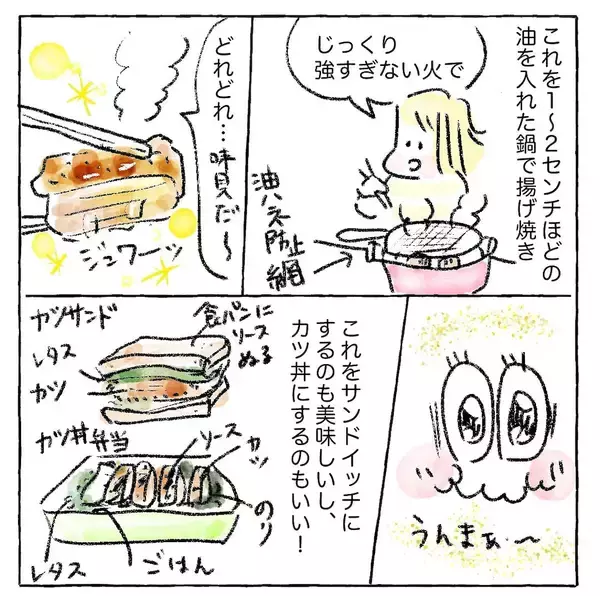 これを1〜2センチほどの
油を入れた鍋で揚げ焼き
じっくり
強すぎない火で
油ハネ防止網
どれどれ…味見だ〜
ジュワーッ
うんまぁ〜
これをサンドイッチに
するのも美味しいし、
カツ丼にするのもいい！
カツサンド
レタス
カツ
食パンに
ソース
ぬる
カツ丼弁当
ソース
カツ
のり
ごはん
レタス